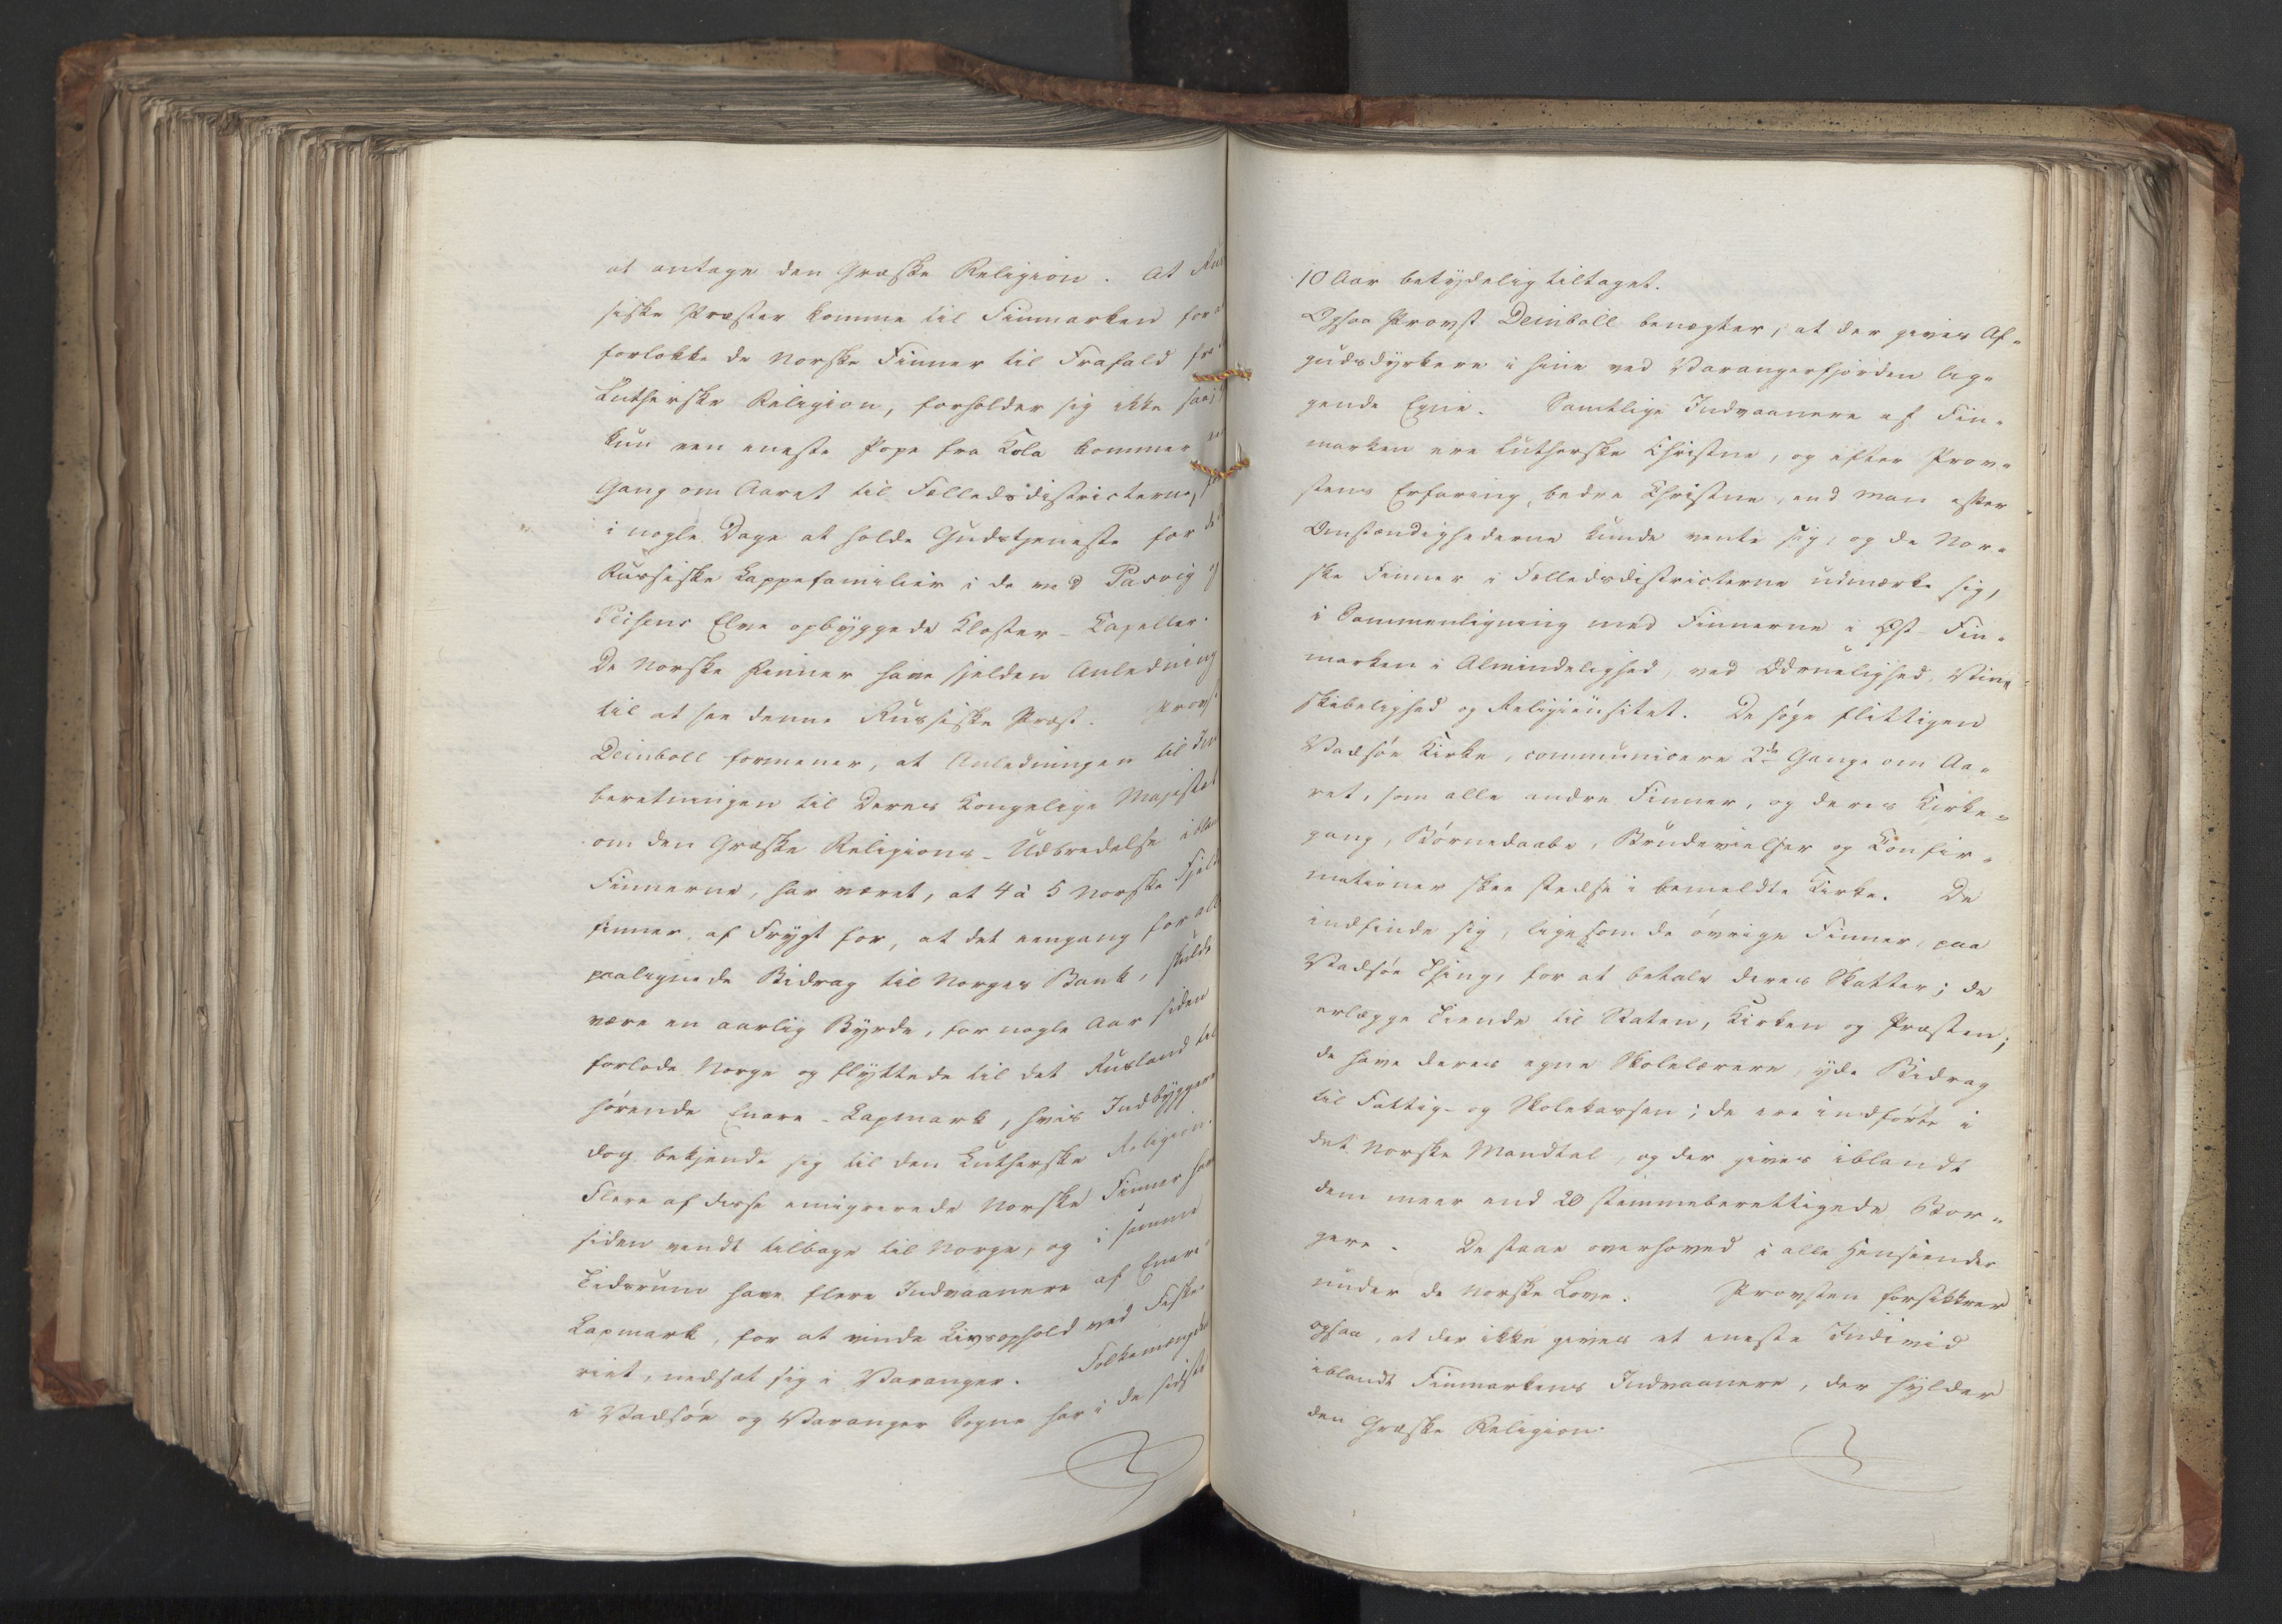 at antage den Græske Religion. At Rus
siske Præster komme til Finmarken for
forlokke de Norske Finner til Frafald fra
Lutherske Religion, forholder sig ikke saa,
kun een eneste Pope fra Kola kommer en
Gang om Aaret til Fælledsdistricterne, for
i nogle Dage at holde Gudstjeneste for de
Russiske Lappefamilier i de ved Pasvig
Peisens Elve opbyggede Kloster-Capeller.
De Norske Finner have sjelden Anledning
til at see denne Russiske Præst. Provst
Deinboll formener, at Anledningen til Ind
beretningen til Deres Kongelige Majestet
om den Græske Religions-Udbredelse iblan
Finnerne, har været, at 4 à 5 Norske Fjeld
finner, af Frygt for, at det eengang for all
paalignede Bidrag til Norges Bank, skulde
være en aarlig Byrde, for nogle Aar siden
forlode Norge og flyttede til det Rusland til
hørende Enare-Lapmark, hvis Indbyggere
dog bekjende sig til den Lutherske Religion.
Flere af disse emigrerede Norske Finner har
siden vendt tilbage til Norge, og i samme
Tidsrum have flere Indvaanere af Enare-
Lapmark, for at vinde Livsophold ved Fiske-
riet, nedsat sig i Varanger. Folkemængden
i Vadsøe og Varanger Sogne har i de sidste
10 Aar betydelig tiltaget.
Ogsaa Provst Deinboll benægter, at der gives Af-
gudsdyrkere i hine ved Varangerfjorden lig-
gende Egne. Samtlige Indvaanere af Fin-
marken ere Lutherske Christne, og efter Prov-
stens Erfaring, bedre Christne, end man efter
Omstændighederne kunde vente sig, og de Nor-
ske Finner i Fælledsdistricterne udmærke sig,
i Sammenligning med Finnerne i Øst-Fin-
marken i Almindelighed, ved Ædruelighed, Vind-
skibelighed og Religiensitet. De søge flittigen
Vadsøe Kirke, communicere 2de Gange om Aa-
ret, som alle andre Finner, og deres Kirke-
gang, Børnedaabe, Brudevielser og Confir-
mationer skee stedse i bemeldte Kirke. De
indfinde sig, ligesom de øvrige Finner, paa
Vadsøe Thing, for at betale deres Skatter; de
erlægge Tiende til Staten, Kirken og Præsten;
de have deres egne Skolelærere, yde Bidrag
til Fattig- og Skolekassen; de ere indførte i
det Norske Mandtal, og der gives iblandt
dem meer end 20 stemmeberettigede Bor-
gere. De staae overhoved i alle Henseender
under de Norske Love. Provsten forsikkrer
ogsaa, at der ikke gives et eneste Individ
iblandt Finmarkens Indvaanere, der hylder
den Græske Religion.